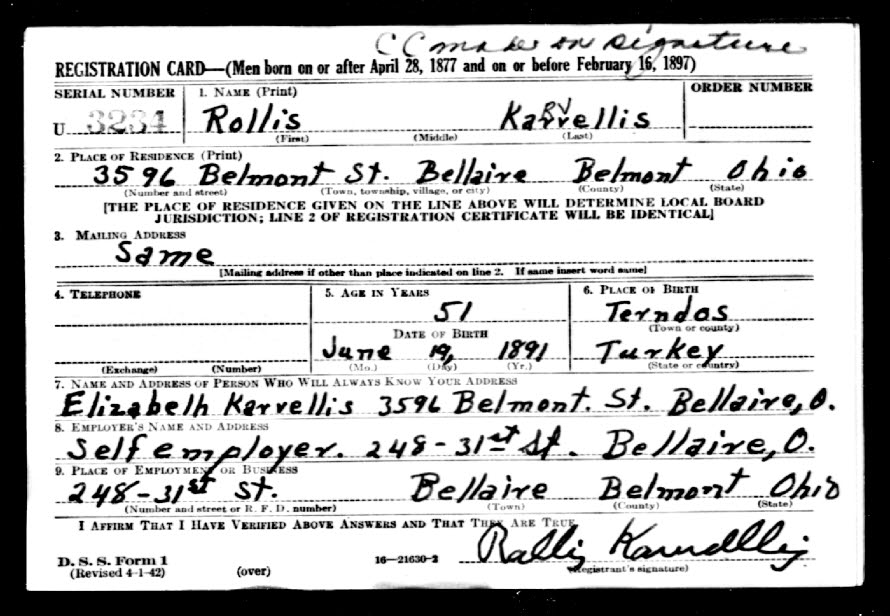 CC made on signature
REGISTRATION CARD—(Men born on or after April 28, 1877 and on or before February 16, 1897)
SERIAL NUMBER 1. NAME (Print) ORDER NUMBER
U 3234 Rollis Karvellis
(First) (Middle) (Last)
2. PLACE OF RESIDENCE (Print)
3596 Belmont St. Bellaire Belmont Ohio
(Number and street) (Town, township, village, or city) (County) (State)
[THE PLACE OF RESIDENCE GIVEN ON THE LINE ABOVE WILL DETERMINE LOCAL BOARD
JURISDICTION; LINE 2 OF REGISTRATION CERTIFICATE WILL BE IDENTICAL]
3. MAILING ADDRESS
Same
[Mailing address if other than place indicated on line 2. If same insert word same]
4. TELEPHONE 5. AGE IN YEARS 6. PLACE OF BIRTH
51 Terndos
DATE OF BIRTH (Town or county)
June 19, 1891 Turkey
(Exchange) (Number) (Mo.) (Day) (Yr.) (State or country)
7. NAME AND ADDRESS OF PERSON WHO WILL ALWAYS KNOW YOUR ADDRESS
Elizabeth Karvellis 3596 Belmont. St. Bellaire, O.
8. EMPLOYER'S NAME AND ADDRESS
Self employer. 248-31st St. Bellaire, O.
9. PLACE OF EMPLOYMENT OR BUSINESS
248-31st St. Bellaire Belmont Ohio
(Number and street or R. F. D. number) (Town) (County) (State)
I AFFIRM THAT I HAVE VERIFIED ABOVE ANSWERS AND THAT THEY ARE TRUE
D. S. S. Form 1
(Revised 4-1-42) (over) 16—21630-2 (Registrant's signature)